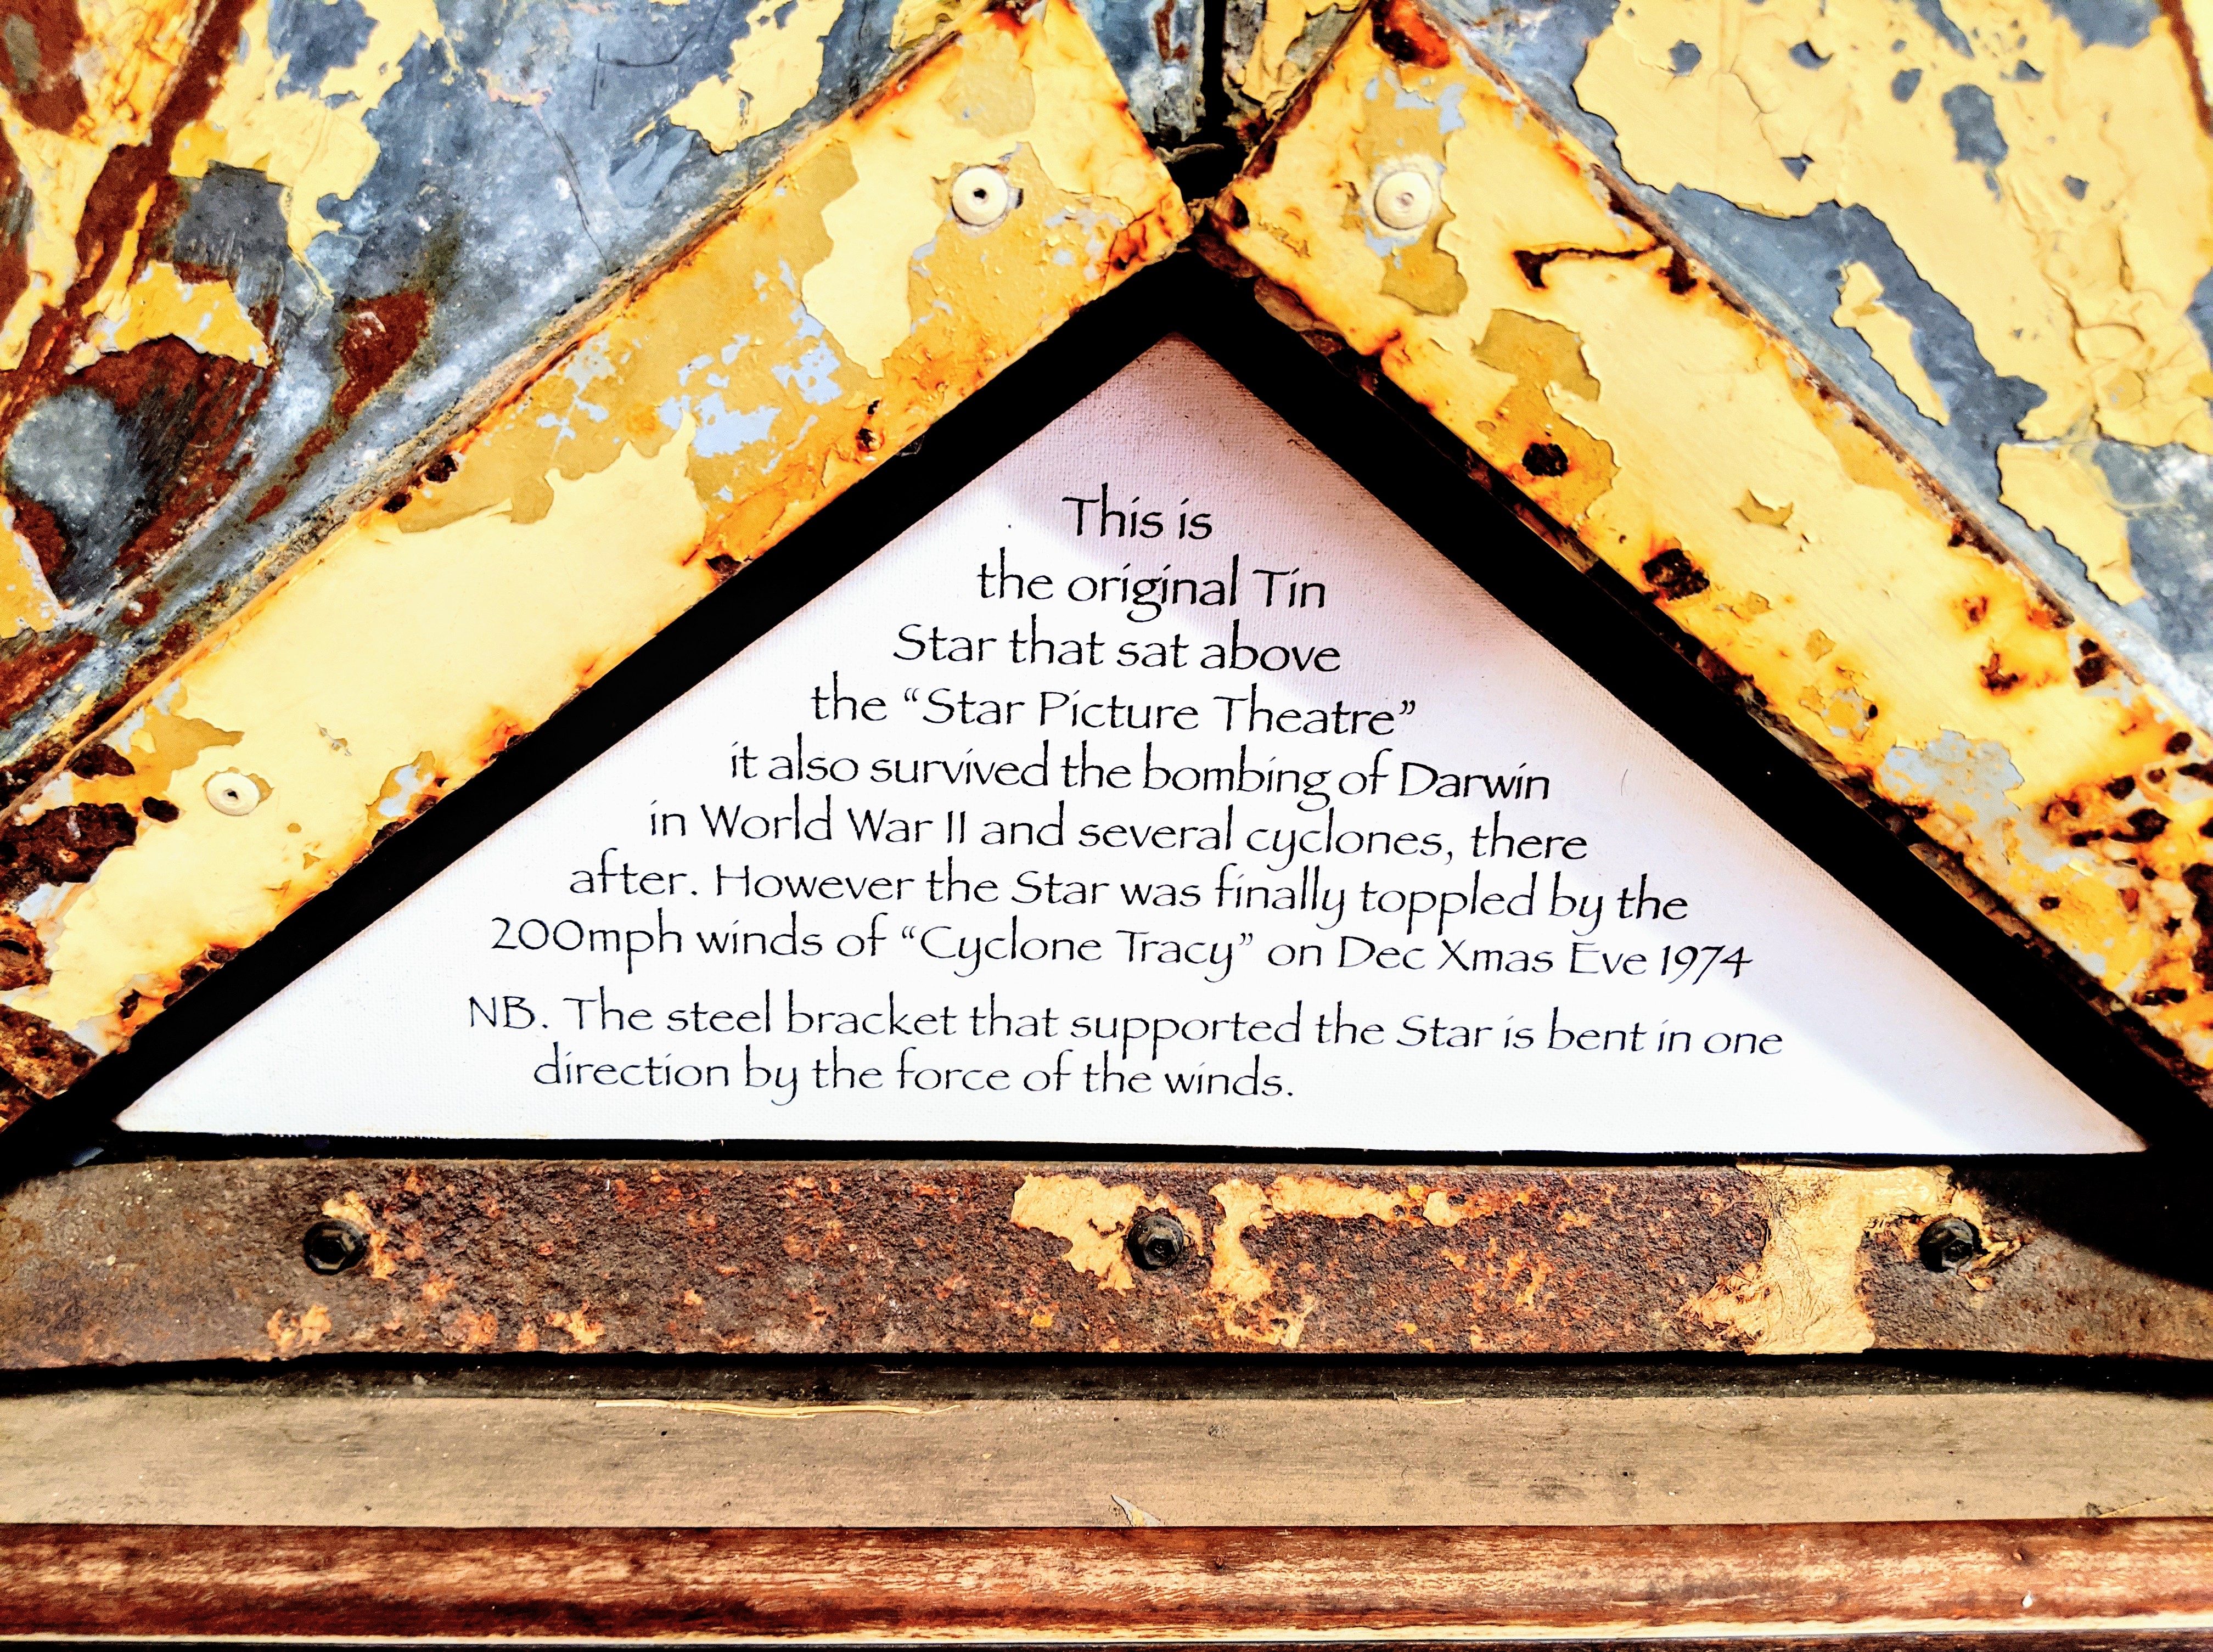 This is
the original Tin
Star that sat above
the “Star Picture Theatre”
it also survived the bombing of Darwin
in World War II and several cyclones, there
after. However the Star was finally toppled by the
200mph winds of “Cyclone Tracy” on Dec Xmas Eve 1974
NB. The steel bracket that supported the Star is bent in one
direction by the force of the winds.